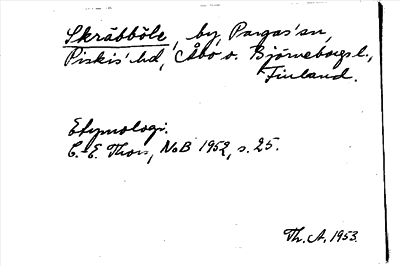 Skräbböle, by, Pargas' sn,
Piskis' hd, Åbo o. Björneborgs l.,
Finland.
Etymologi:
C.-E. Thors, NoB 1952, s. 25.
Th. A. 1953.